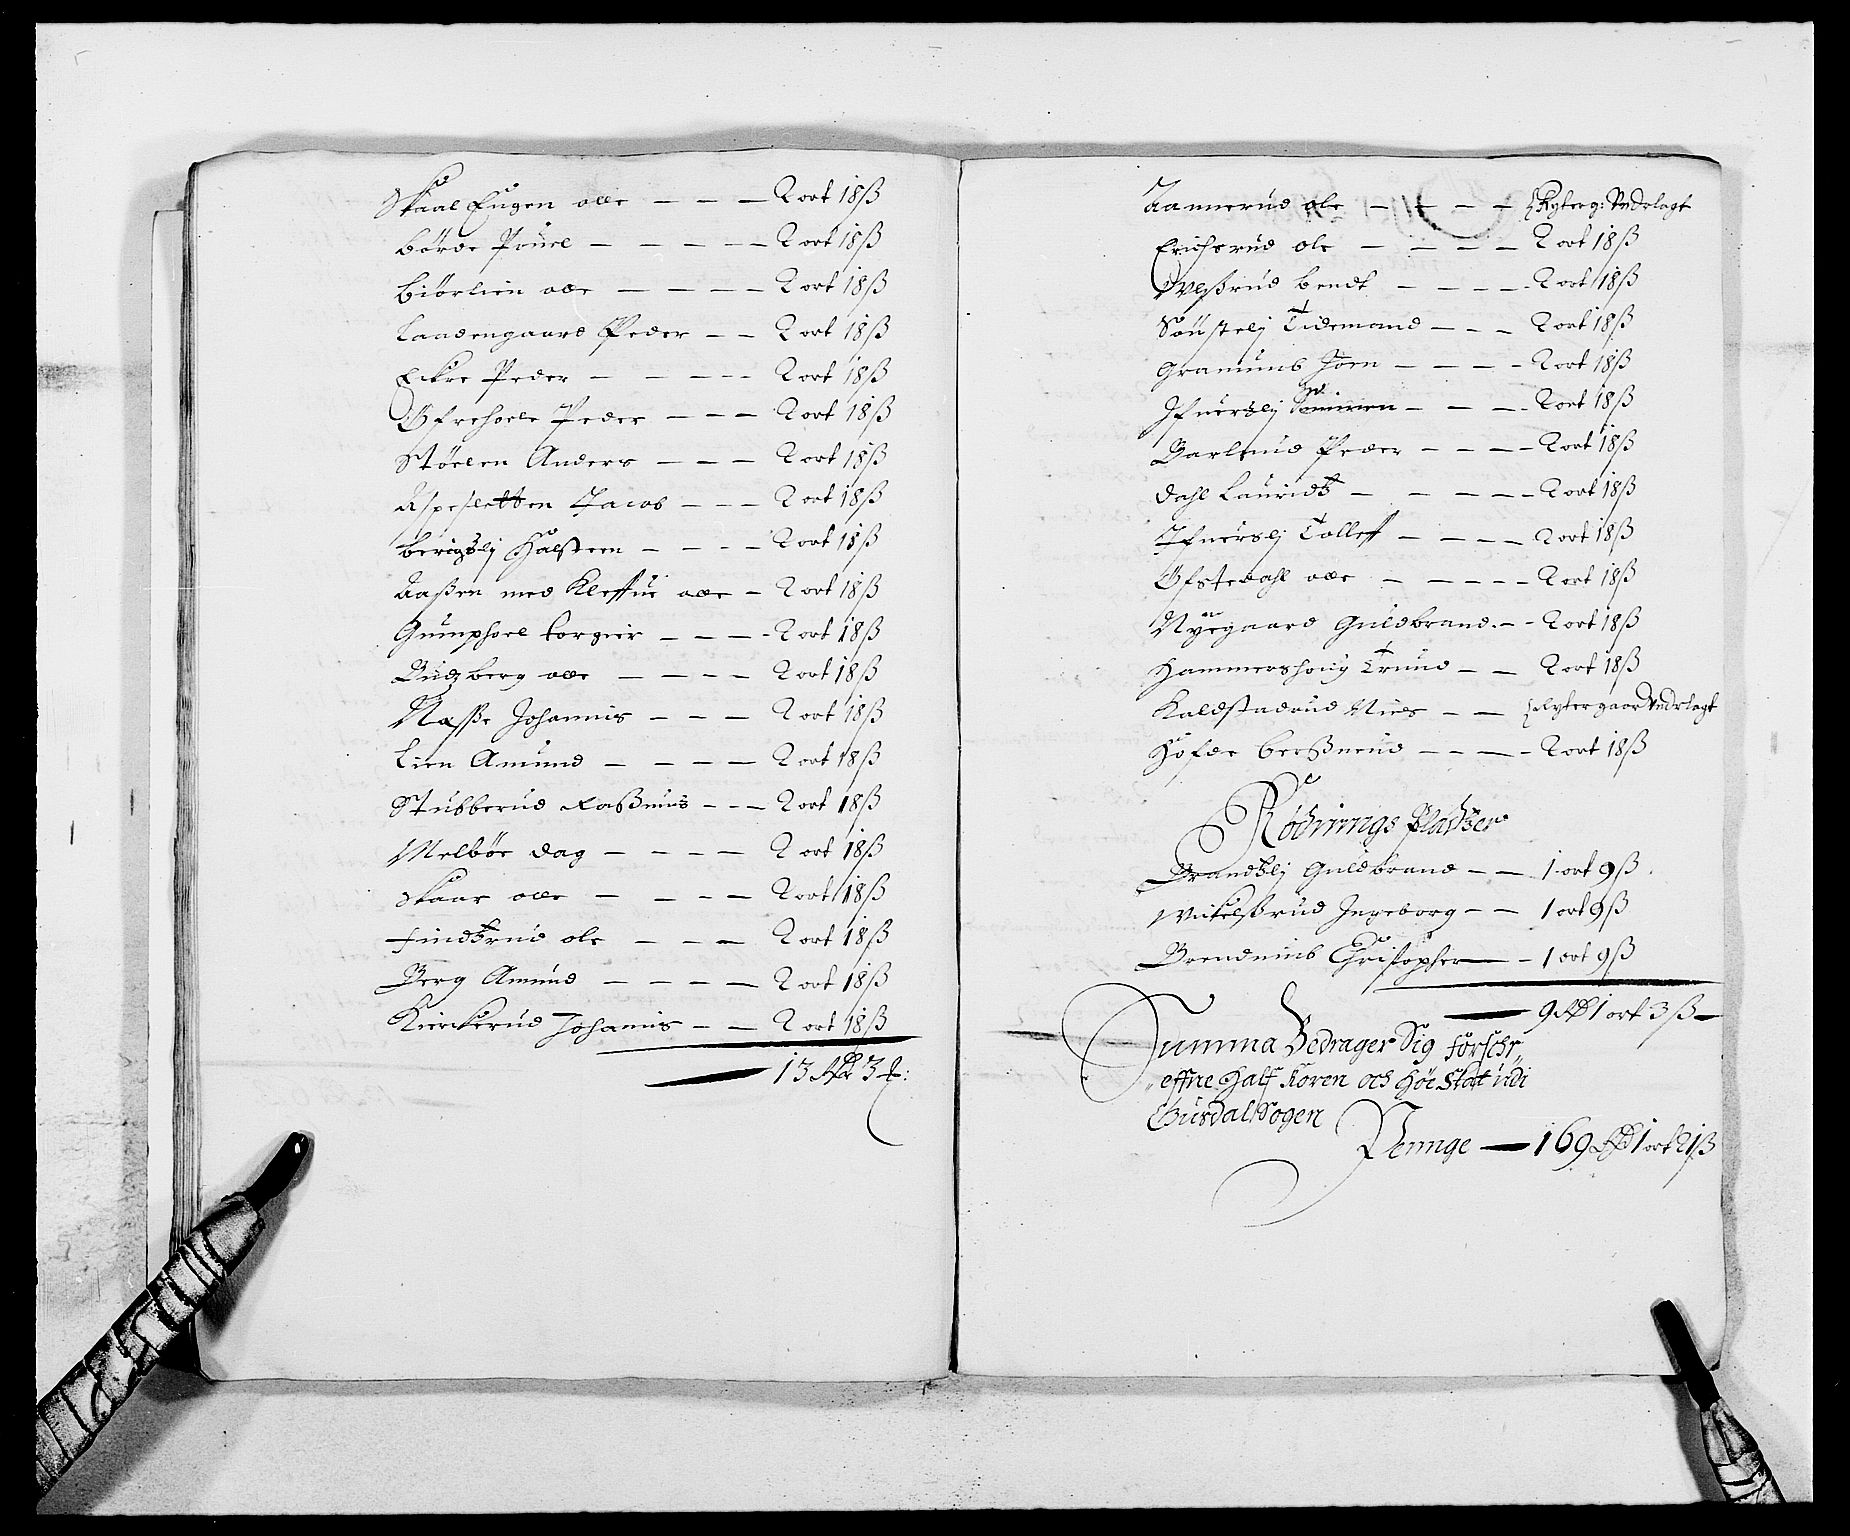 Skaal Eugen olle — — — 2 ort 18 ß
Børde Pouel — — — — — 2 ort 18 ß
Biørlien olle — — — — 2 ort 18 ß
Laadengaard Peder — — 2 ort 18 ß
Eckre Peder — — — — 2 ort 18 ß
Ofrehoele Peder — — — 2 ort 18 ß
Støelen Anders — — — 2 ort 18 ß
Aspesletten Jacob — — — 2 ort 18 ß
Berigslj Halsteen — — — — 2 ort 18 ß
Aaßen med Kleffue olle — 2 ort 18 ß
Gumphoel torgier — — — — 2 ort 18 ß
Rudzberg olle — — — — 2 ort 18 ß
Næsse Johannis — — — 2 ort 18 ß
Lien Amund — — — — 2 ort 18 ß
Stubberud Raßmus — — — 2 ort 18 ß
Melbøe dag — — — — 2 ort 18 ß
Skaar olle — — — — 2 ort 18 ß
Findtzrud ole — — — 2 ort 18 ß
Berg Amund — — — — 2 ort 18 ß
Kierkerud Johannis — — 2 ort 18 ß
— 13 Rdr 3 ort:
Aannerud ole — — — — Rÿterg: Vnderlagt
Erichsrud ole — — — — 2 ort 18 ß
Oulßrud bendt — — — — 2 ort 18 ß
Søustelj Tidemand — — — 2 ort 18 ß
Gramuns Joen — — — — 2 ort 18 ß
Ifuerslj — — — 2 ort 18 ß
Peder — — — — 2 ort 18 ß
Dahl Lauridtz — — — — 2 ort 18 ß
Ifuerslj Tolleff — — — — 2 ort 18 ß
Ofstedahl olle — — — — — 2 ort 18 ß
Nÿegaard Guldbrand — — 2 ort 18 ß
Hammershoug Trund — — 2 ort 18 ß
Kaldstadrud Niels — — Rÿtergaar Vnderlagt
Hofde — — — — 2 ort 18 ß
Rødnings Pladtzer
Brandtzlj Guldbrand — — 1 ort 9 ß
Mickelsrud Ingeborg — — 1 ort 9 ß
Brendmins Christopher — — 1 ort 9 ß
— 9 Rdr 1 ort 3 ß —
Summa Bedrager Sig forschr
effne half Koren och Høe Skat udi
Gusdal Sogen
Pennge — 169 Rdr 1 ort 21 ß